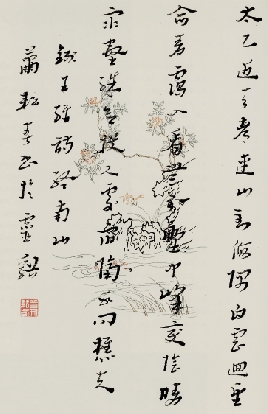 太乙近天都連山到海隅白雲迴望
合青靄入看無分野中峰變陰晴
眾壑殊欲投人處宿隔水問樵夫
錄王維詩終南山
蕭耘春書於靈谿